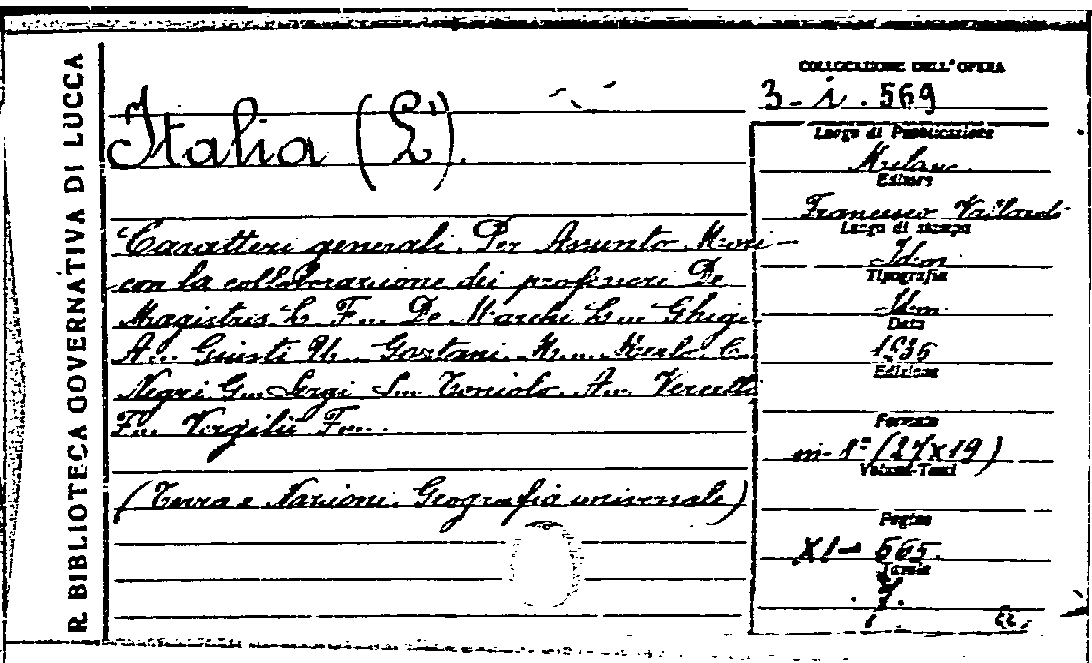 R. BIBLIOTECA GOVERNATIVA DI LUCCA
Italia (L').
Caratteri generali. Per Assunto Mori
con la collaborazione dei professori De
Magistris L. F... De Marchi L... Ghigi
A... Giusti U... Gortani M... Merlo C.
Negri G... Sergi S... Toniolo A... Vercelli
F... Vergilii F...
(Terra e Nazioni. Geografia universale)
COLLOCAZIONE DELL'OPERA
3 - i . 569
Luogo di Pubblicazione
Milano
Editore
Francesco Vallardi
Luogo di stampa
Idm
Tipografia
Idm
Data
1936
Edizione
Formato
in-1° (27x19)
Volumi-Tomi
Pagine
XI - 565.
Tavole